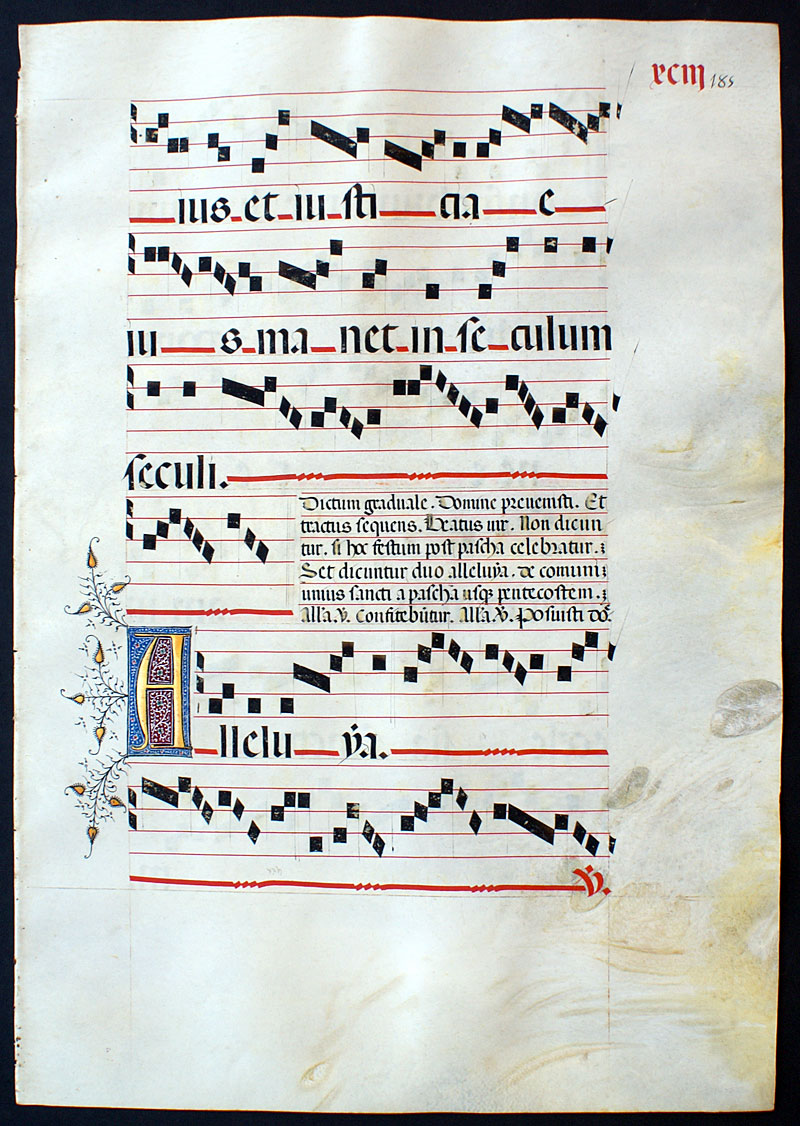 xcm 185
ius et iusticia e
ius manet in seculum
seculi.
Dictum graduale. Domine prevenisti. Et
tractus sequens. Beatus vir. Non dicun
tur. si hoc festum post pascha celebratur.
Set dicuntur duo alleluya. de comuni
unius sancti a pascha usqз pentecostem.
Alla. V. Confitebūtur. Alla. V. Posuisti dō.
Alleluya.
V.